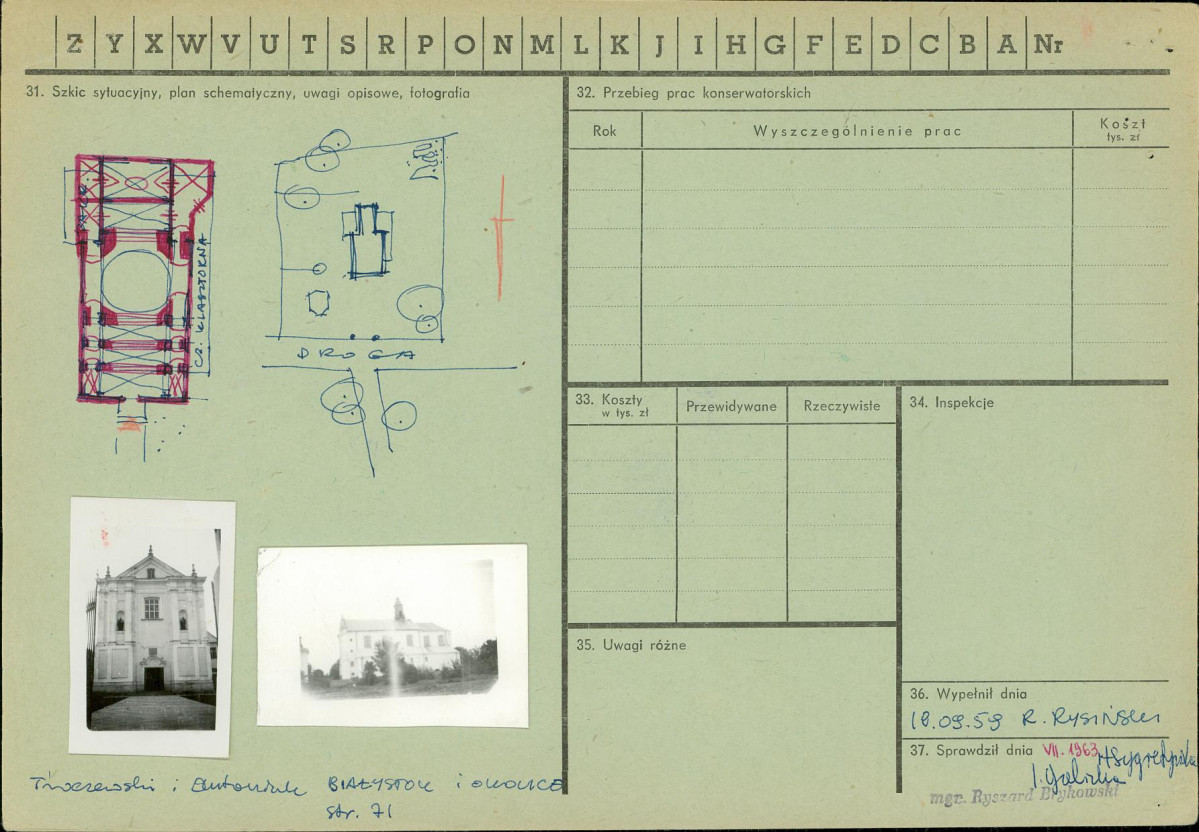 Z Y X W V U T S R P O N M L K J I H G F E D C B A Nr
31. Szkic sytuacyjny, plan schematyczny, uwagi opisowe, fotografia
CZ. KLASZTORNA
DROGA
i BIAŁYSTOK i OKOLICE
str. 71
32. Przebieg prac konserwatorskich
Rok Wyszczególnienie prac Koszt
tys. zł
33. Koszty
w tys. zł
Przewidywane Rzeczywiste
34. Inspekcje
35. Uwagi różne
36. Wypełnił dnia
18.09.59 R. RYSIŃSKI
37. Sprawdził dnia VII.1963
mgr. Ryszard Brykowski